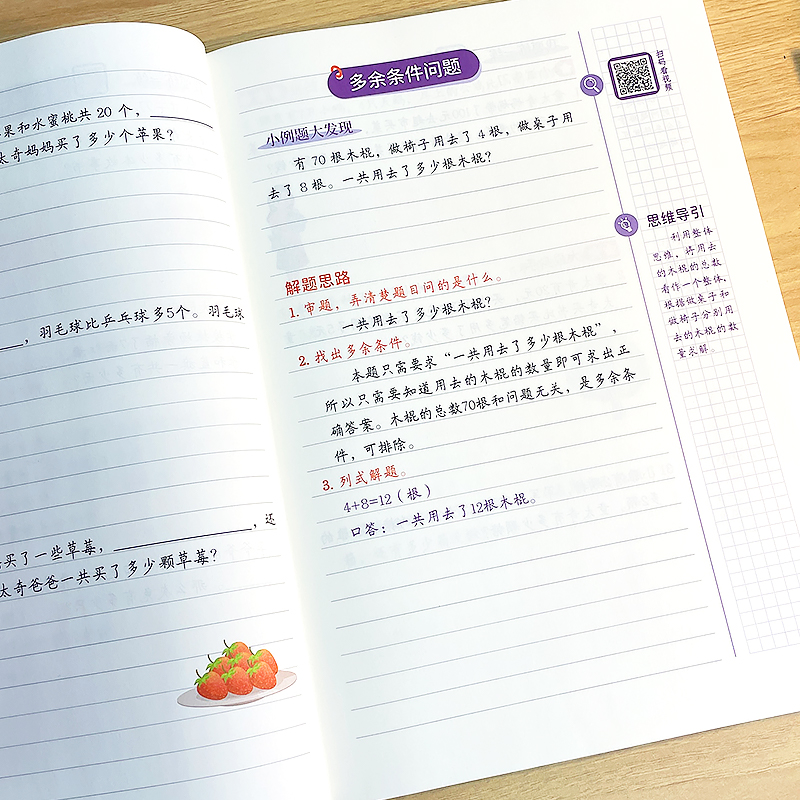 果和水蜜桃共 20 个，
太奇妈妈买了多少个苹果？
，羽毛球比乒乓球多5个。羽毛球
买了一些草莓，，还
太奇爸爸一共买了多少颗草莓？
多余条件问题
小例题大发现
有 70 根木棍，做椅子用去了 4 根，做桌子用
去了 8 根。一共用去了多少根木棍？
解题思路
1. 审题，弄清楚题目问的是什么。
一共用去了多少根木棍？
2. 找出多余条件。
本题只需要求“一共用去了多少根木棍”，
所以只需要知道用去的木棍的数量即可求出正
确答案。木棍的总数70根和问题无关，是多余条
件，可排除。
3. 列式解题。
4+8=12（根）
口答：一共用去了12根木棍。
扫码看视频
思维导引
利用整体
思维，将用去
的木棍的总数
看作一个整体，
根据做桌子和
做椅子分别用
去的木棍的数
量求解。